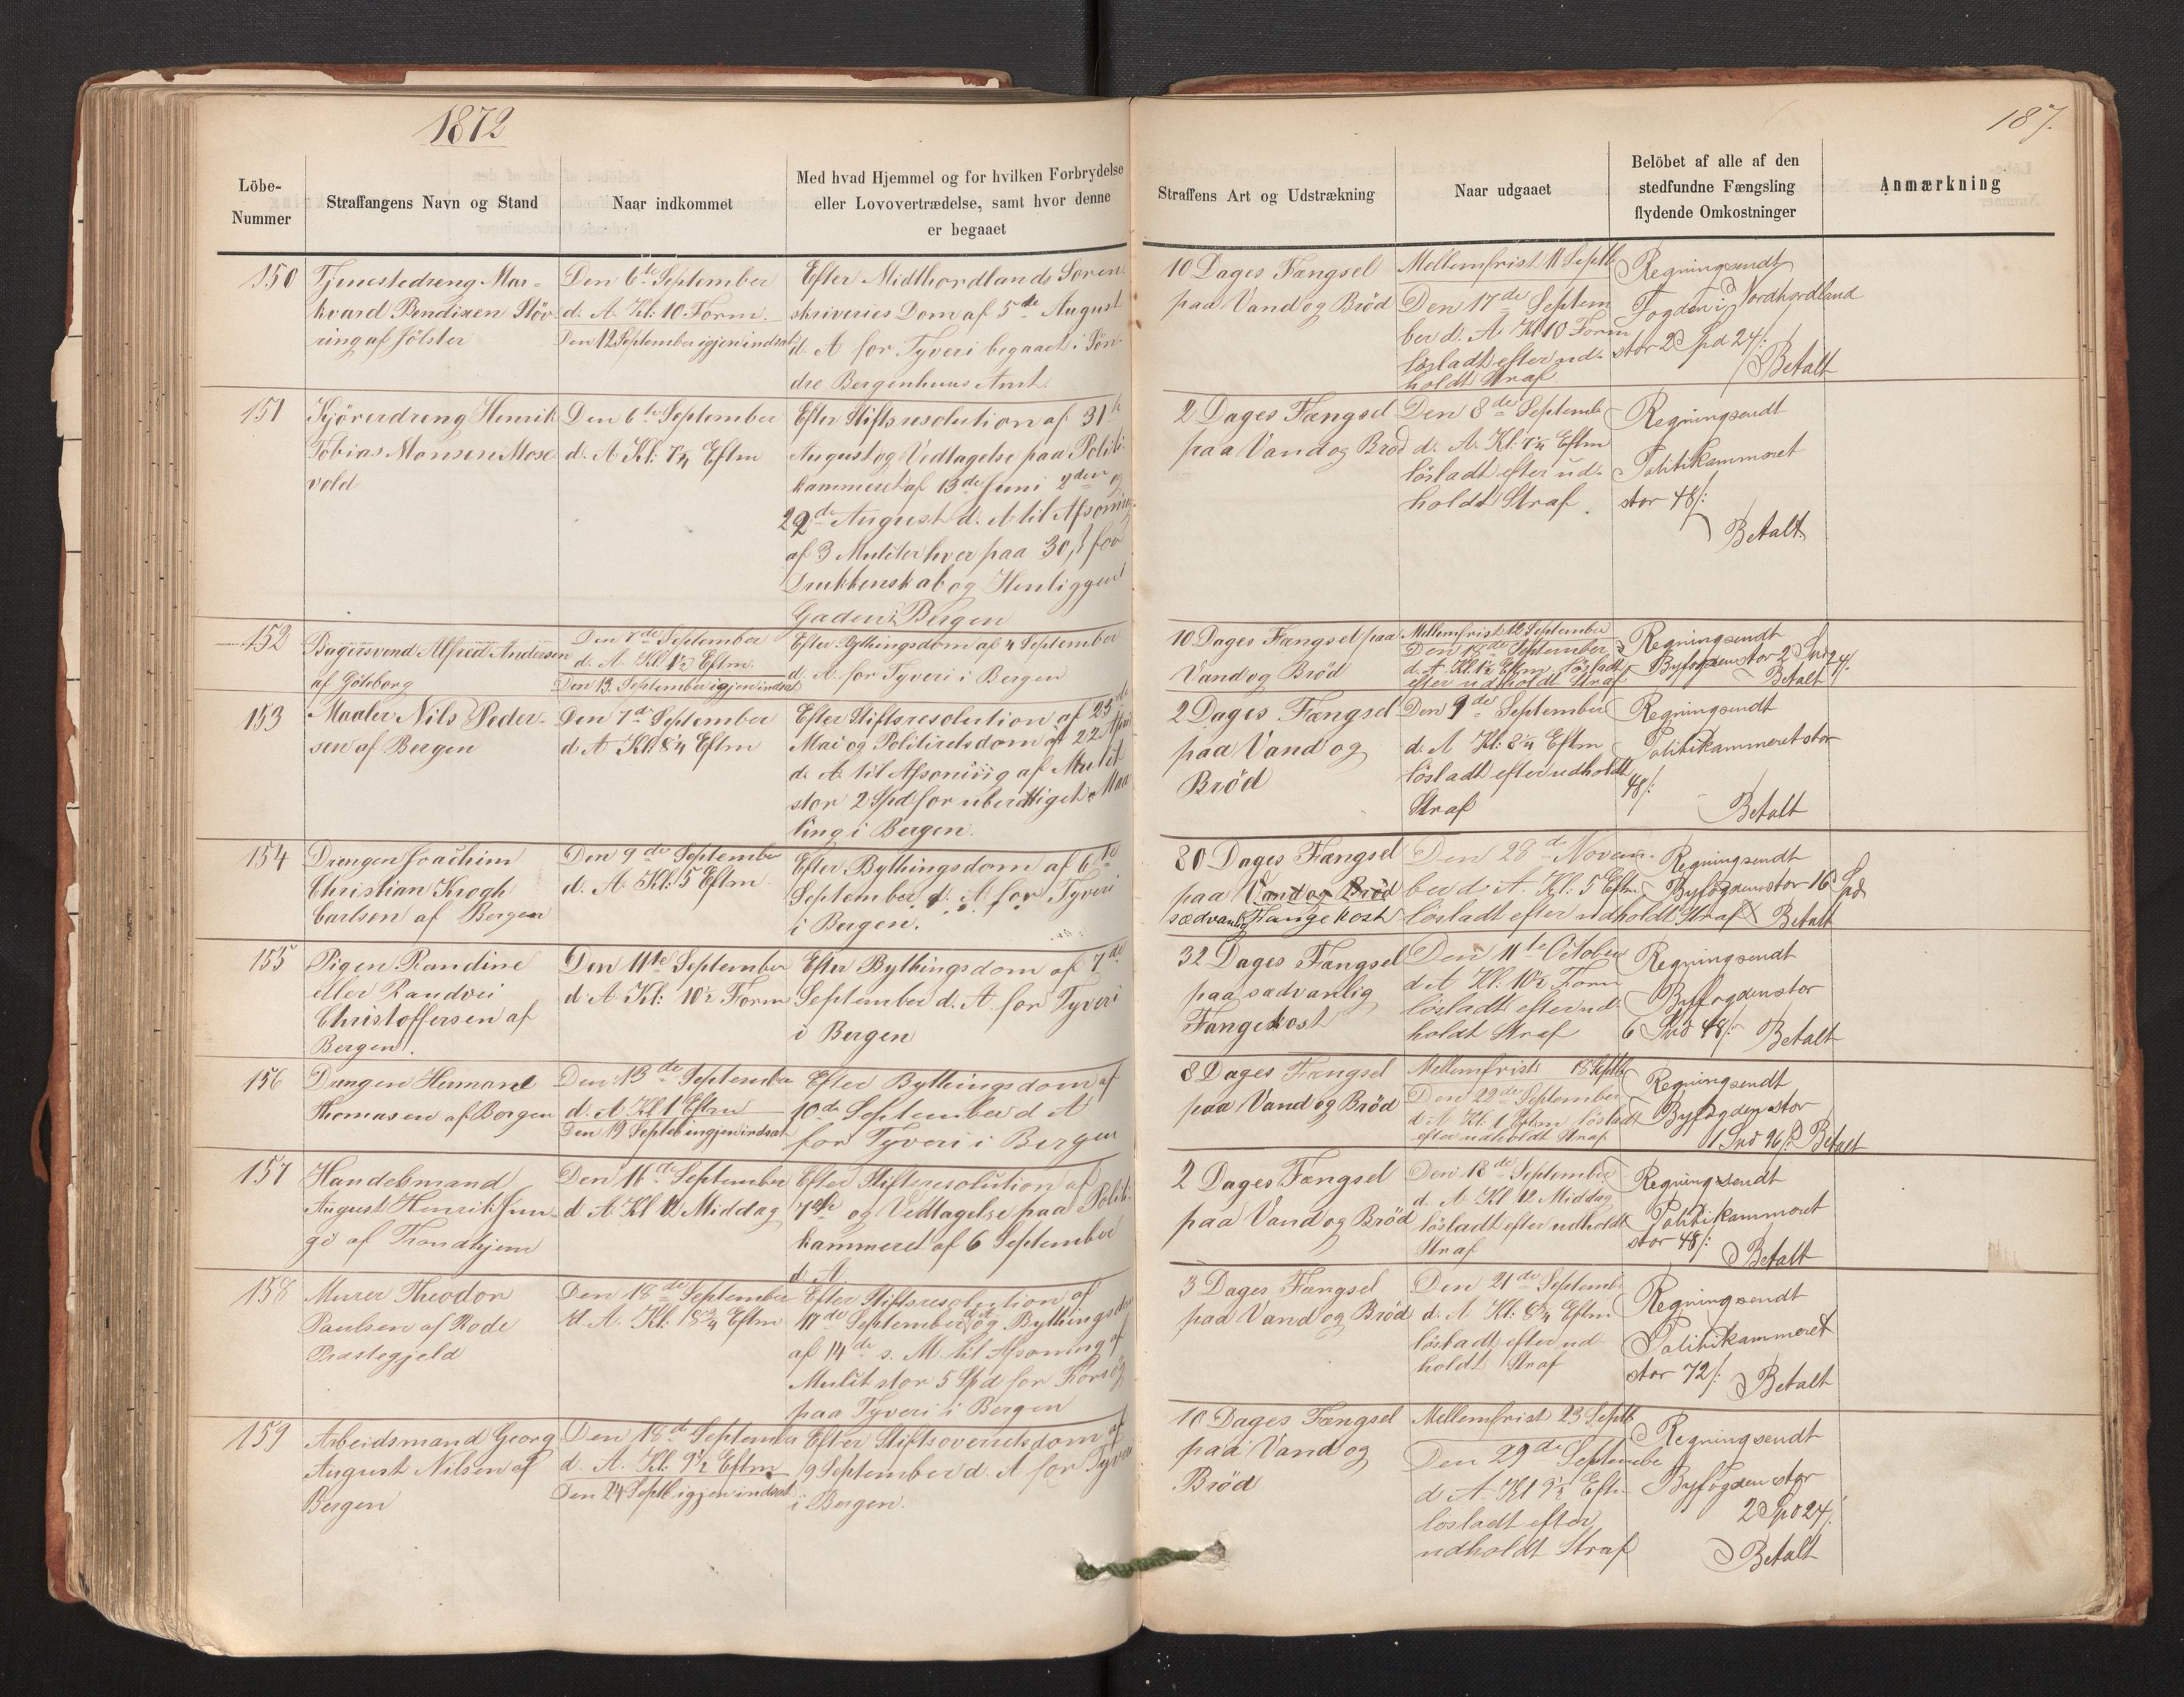 1872
187.
Löbe-
Nummer
Straffangens Navn og Stand
Naar indkommet
Med hvad Hjemmel og for hvilken Forbrydelse
eller Lovovertrædelse, samt hvor denne
er begaaet
Straffens Art og Udstrækning
Naar udgaaet
Belöbet af alle af den
stedfundne Fængsling
flydende Omkostninger
Anmærkning
150
Tjenestedreng Mar-
kvard Bendixen Stöv
ring af Jölster
Den 6te September
d. A. Kl: 10 Form.
Den 12 September igjen indsat
Efter Midthordlands Soren
skriveries Dom af 5te August
d. A for Tyveri begaaet i Sön-
dre Bergenhuus Amt.
10 Dages Fængsel
paa Vand og Bröd
Mellemfrist 11 Septb
Den 17de Septem
ber d. A. Kl 10 Form
lösladt efter ud-
holdt Straf.
Regning sendt
Fogden i Nordhordland
stor 2 Spd 24/:
Betalt
151
Kjörerdreng Henrik
Tobias Monsen Mose
vold
Den 6te September
d. A. Kl: 7¼ Eftm
Efter Stiftsresolution af 31te
August og Vedtagelse paa Politi-
kammeret af 13de Juni 2den og
29de August d. A til Afsoning
af 3 Mulcter hver paa 30 ß for
Drukkenskab og Henliggen
Gaden i Bergen
2 Dages Fængsel
paa Vand og Bröd
Den 8de Septemb
d. A. Kl: 7¼ Eftm
lösladt efter ud-
holdt Straf.
Regning sendt
Politikammeret
stor 48/:
Betalt
152
Bagersvend Alfred Andersen
af Göteborg
Den 7de September
d. A. Kl 1½ Eftm.
Den 13. September igjen indsat
Efter Bythingsdom af 4 September
d. A. for Tyveri i Bergen
10 Dages Fængsel paa
Vand og Bröd
Mellemfrist 12 September
Den 18de September
d. A. Kl. 1½ Eftm lösladt
efter udholdt Straf
Regning sendt
Byfogden stor 2 Spd 24/:
Betalt
153
Maaler Nils Peder-
sen af Bergen
Den 7de September
d. A Kl: 8¼ Eftm
Efter Stiftsresolution af 23de
Mai og Politiretsdom af 22 April
d. A. til Afsoning af Mulct
stor 2 Spd for uberettiget Maa
ling i Bergen.
2 Dages Fængsel
paa Vand og
Bröd
Den 9de September
d. A Kl: 8¼ Eftm
lösladt efter udholdt
Straf
Regning sendt
Politikammeret stor
48/:
Betalt
154
Drengen Joachim
Christian Krogh
Carlsen af Bergen
Den 9de September
d. A. Kl: 5 Eftm
Efter Bythingsdom af 6te
September d. A. for Tyveri
i Bergen.
80 Dages Fængsel
paa Vand og Bröd
sædvanlig Fangekost
Den 28de Novem-
ber d. A. Kl: 5 Eftm
lösladt efter udholdt Straf
Regning sendt
Byfogden stor 16 Spd
Betalt
155
Pigen Randine
eller Randvei
Christoffersen af
Bergen.
Den 11te September
d. A. Kl: 10½ Form
Efter Bythingsdom af 7de
September d. A. for Tyveri
i Bergen
32 Dages Fængsel
paa sædvanlig
Fangekost
Den 11te October
d A Kl: 10½ Form
lösladt efter ud-
holdt Straf
Regning sendt
Byfogden stor
6 Spd 48/: Betalt
156
Drengen Hermann
Thomasen af Bergen
Den 13de September
d. A Kl 1 Eftm
Den 19 Septeb igjen indsat
Efter Bythingsdom af
10de September d A
for Tyveri i Bergen
8 Dages Fængsel
paa Vand og Bröd
Mellemfrist 18 Septb
Den 22de September
d A Kl. 1 Eftm lösladt
efter udholdt Straf
Regning sendt
Byfogden stor
1 Spd 96/: Betalt
157
Handelsmand
August Henrik Jun-
ge af Trondhjem
Den 16de September
d. A Kl 12 Middag
Efter Stiftsresolution af
7de og Vedtagelse paa Politi-
kammeret af 6 September
d. A.
2 Dages Fængsel
paa Vand og Bröd
Den 18de September
d. A. Kl 12 Middag
lösladt efter udholdt
Straf
Regning sendt
Politikammeret
stor 48/:
Betalt
158
Murer Theodor
Paulsen af Rode
Præstegjeld
Den 18de September
d. A. Kl: 8¾ Eftm
Efter Stiftsresolution af
17de September og Bythingsdom
af 14de s. M. til Afsoning af
Mulct stor 5 Spd for Forsög
paa Tyveri i Bergen
3 Dages Fængsel
paa Vand og Bröd
Den 21de Septemb
d. A. Kl: 8¾ Eftm
lösladt efter ud
holdt Straf
Regning sendt
Politikammeret
stor 72/:
Betalt
159
Arbeidsmand Georg
August Nilsen af
Bergen
Den 18de September
d. A. Kl: 9½ Eftm
Den 24 Septb igjen indsat
Efter Stiftsoverretsdom af
9 September d. A for Tyveri
i Bergen.
10 Dages Fængsel
paa Vand og
Bröd
Mellemfrist 23 Septb
Den 29de Septembe
d. A. Kl 9½ Eftm
losladt efter
udholdt Straf
Regning sendt
Byfogden stor
2 Spd 24/:
Betalt